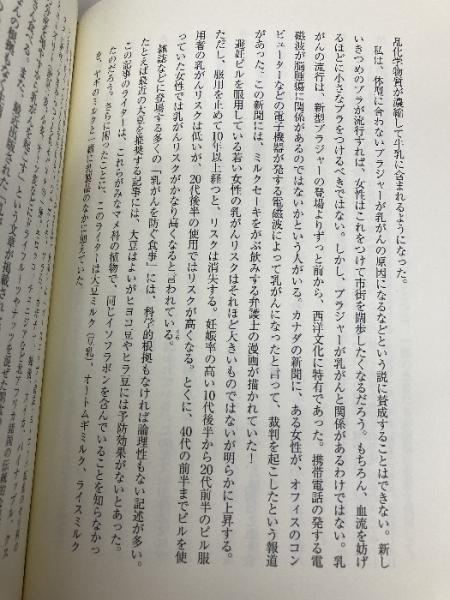 乱化学物質が濃縮して牛乳に含まれるようになった。
私は、体型に合わないブラジャーが乳がんの原因になるなどという説に賛成することはできない。新し
いきつめのブラが流行すれば、女性はこれをつけて市街を闊歩したくなるだろう。もちろん、血流を妨げ
るほどに小さなブラをつけるべきではない。しかし、ブラジャーが乳がんと関係があるわけではない。乳
がんの流行は、新型ブラジャーの登場よりずっと前から、西洋文化に特有であった。携帯電話の発する電
磁波が脳腫瘍に関係があるのではないかという人がいる。カナダの新聞に、ある女性が、オフィスのコン
ピューターなどの電子機器が発する電磁波によって乳がんになったと言って、裁判を起こしたという報道
があった。この新聞には、ミルクセーキをがぶ飲みする弁護士の漫画が描かれていた！
避妊ピルを服用している若い女性の乳がんリスクはそれほど大きいものではないが明らかに上昇する。
ただし、服用を止めて10年以上経つと、リスクは消失する。妊娠率の高い10代後半から20代前半のピル服
用者の乳がんリスクは低いが、20代後半の使用ではリスクが高くなる。とくに、40代の前半までピルを使
っていた女性では乳がんリスクがかなり高くなると言われている。
雑誌などに登場する多くの「乳がんを防ぐ食事」には、科学的根拠もなければ論理性もない記述が多い。
たとえば最近の大豆を推奨する記事には、大豆はよいがヒヨコ豆やヒラ豆には予防効果がないとあった。
この記事のライターは、これらがみなマメ科の植物で、同じイソフラボンを含んでいることを知らなかっ
たのだろう。さらに困ったことに、このライターは大豆ミルク（豆乳）、オートムギミルク、ライスミルク
を、ヤギのミルクと一緒に乳製品のなかに加えていた。